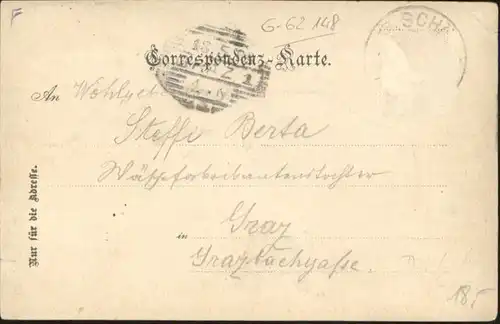 F
G-62 148
SCH
Correspondenz-Karte.
An Wohlgeb
Steffi Berta
Wäschefabrikantenstochter
Graz
in
Grazbachgasse.
Nur für die Adresse.
185